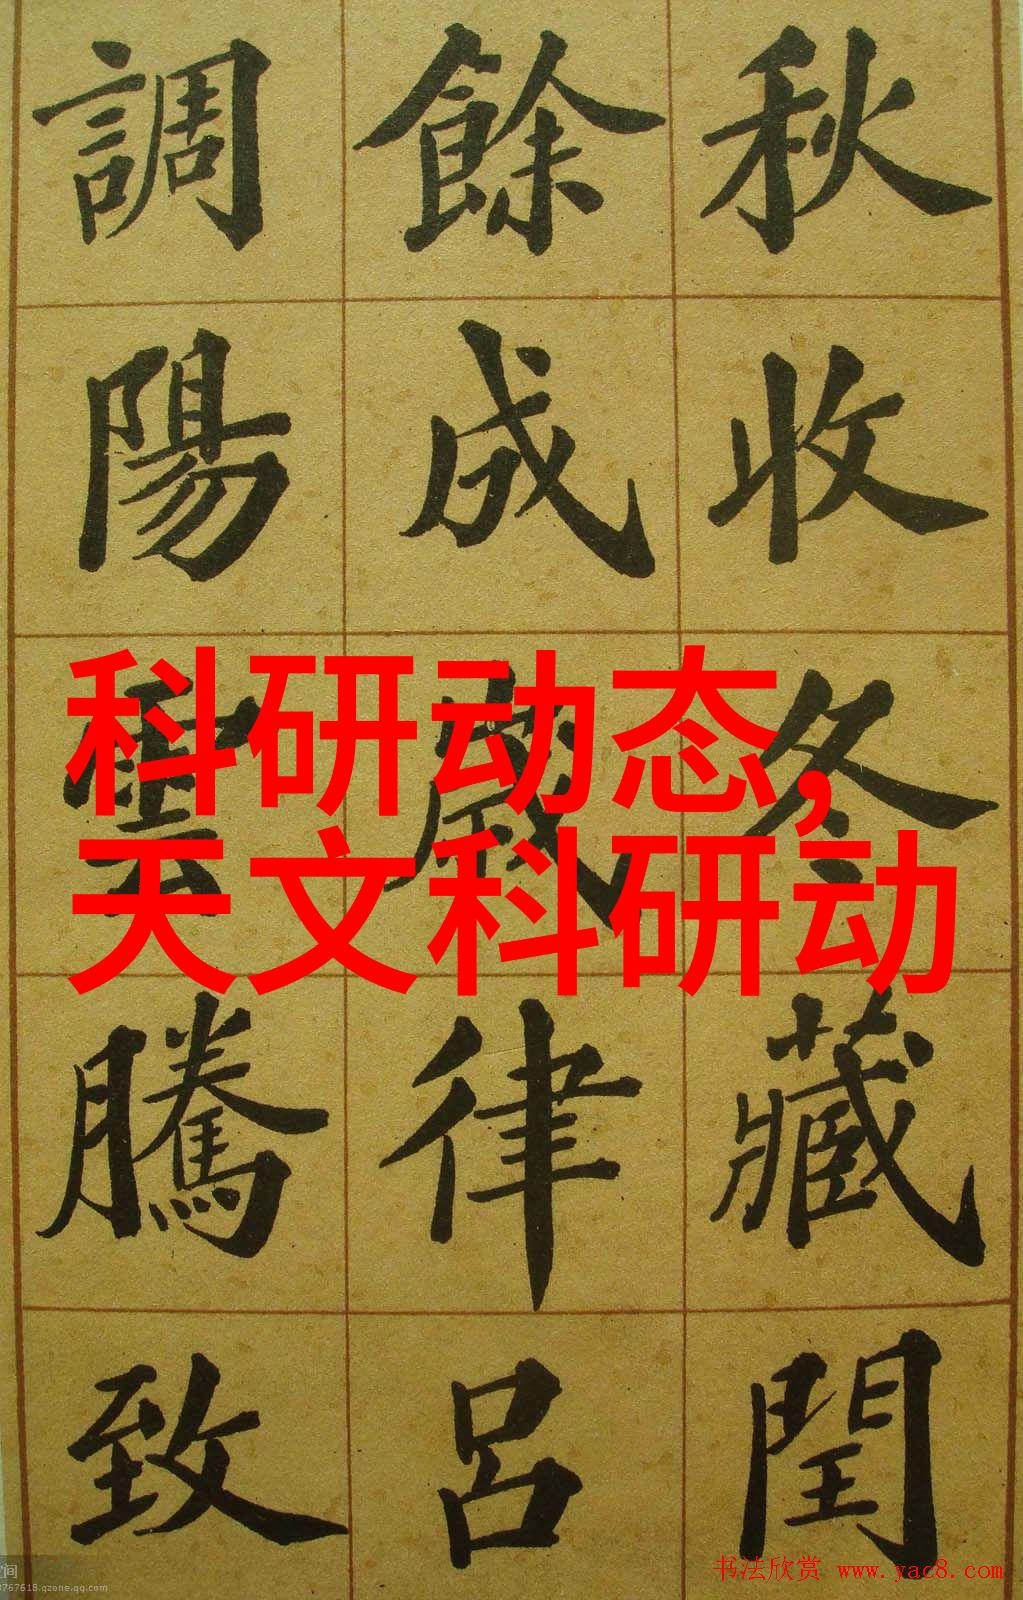 秋收冬藏閏
餘成歲律呂
調陽雲騰致
科研动态,
天文科研动
书法欣赏 www.yac8.com
间
767618.qzone.qq.com